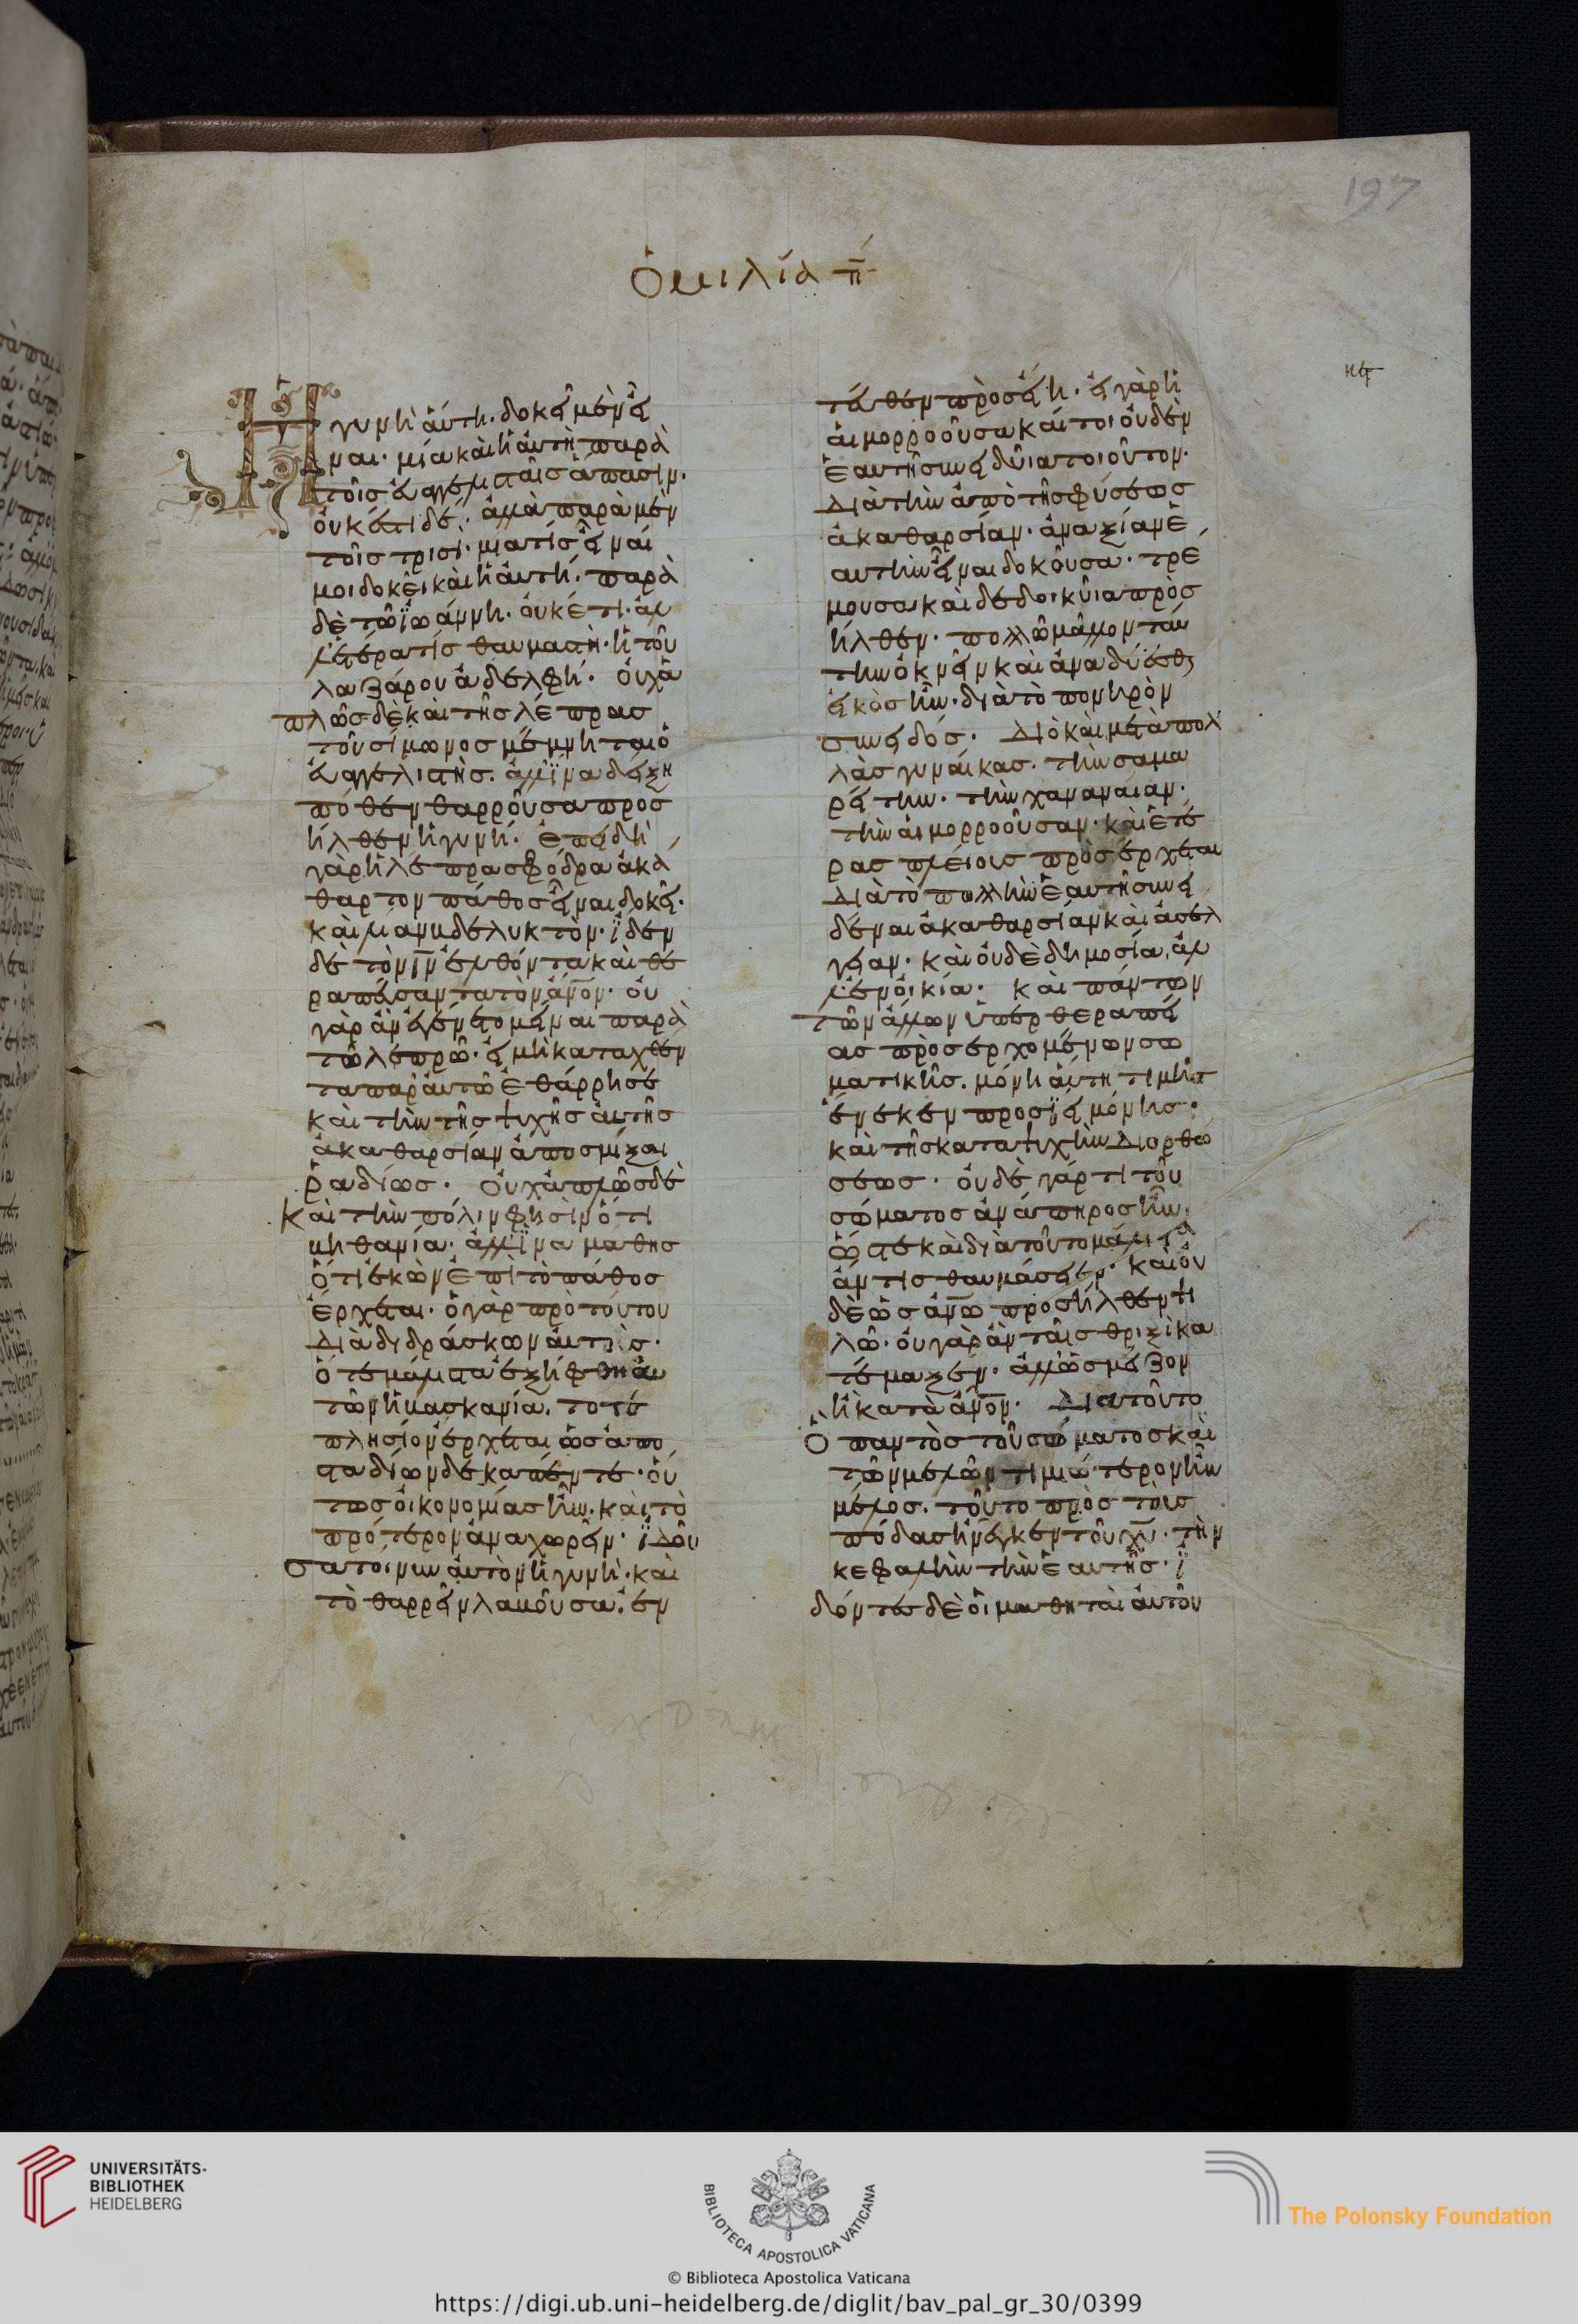 197
ὁμιλία π̅
Ἡ γυνὴ αὕτη· δοκεῖ μὲν εἶ
ναι· μία καὶ ἡ αὐτὴ παρὰ
τοῖς εὐαγγελισταῖς ἅπασιν·
οὐκ ἔστι δέ· ἀλλὰ παρὰ μὲν
τοῖς τρισὶ· μία τίς εἶναί
μοι δοκεῖ καὶ ἡ αὐτή· παρὰ
δὲ τῶ ϊωάννη· οὐκέτι· ἀλ
λ' ἑτέρα τίς θαυμαστὴ· ἡ τοῦ
λαζάρου ἀδελφή· οὐχ ἁ
πλῶς δὲ καὶ τῆς λέπρας
τοῦ σίμωνος μέμνηται ὁ
εὐαγγελιστὴς· ἀλλ' ΐνα δείξη
πόθεν θαρροῦσα προσ
ῆλθεν ἡ γυνή· ἐπειδὴ
γὰρ ἡ λέπρα σφόδρα ἀκά
θαρτον πάθος εἶναι δοκεῖ·
καὶ λίαν βδελυκτὸν· ϊδεν
δὲ τὸν ι̅ν̅ ἐλθόντα καὶ θε
ραπεύσαντα τὸν α̅ν̅ο̅ν̅· οὐ
γὰρ ἂν εἵλετο μεῖναι παρὰ
τῶ λεπρῶ· εἰ μὴ καταχθέν
τα παρ' αὐτῶ ἐθάρρησε
καὶ τὴν τῆς ψυχῆς αὐτῆς
ἀκαθαρσίαν ἀποσμίξαι
ῥαδίως· οὐχ ἁπλῶς δὲ
καὶ τὴν πόλιν φησὶν ὅτι
βηθανία· ἀλλ' ΐνα μάθης
ὅτι ἑκὼν ἐπὶ τὸ πάθος
ἔρχεται· ὁ γὰρ πρὸ τούτου
διαδιδράσκων αὐτοὺς·
ὅτε μάλιστα ἐξήφθη αὐ
τῶν ἡ βασκανία· τότε
πλησίον ἔρχεται ὡς ἀπὸ
σταδίων δεκαπέντε· οὕ
τως οἰκονομίας ἦν· καὶ τὸ
πρότερον ἀναχωρεῖν· ϊδοῦ
σα τοίνυν αὐτὸν ἡ γυνὴ· καὶ
τὸ θαρρεῖν λαβοῦσα· ἐν
τεῦθεν προσείη· εἰ γὰρ ἡ
αἱμορροοῦσα καίτοι οὐδὲν
ἑαυτῆ συνειδυῖα τοιοῦτον·
διὰ τὴν ἀπὸ τῆς φύσεως
ἀκαθαρσίαν· ἀναξίαν ἑ
αυτὴν εἶναι δοκοῦσα· τρέ
μουσα καὶ δεδοικυῖα προσ
ῆλθεν· πολλῶ μᾶλλον ταύ
την ὀκνεῖν καὶ ἀναδύεσθαι
εἰκὸς ἦν· διὰ τὸ πονηρὸν
συνειδός· διὸ καὶ μετὰ πολ
λὰς γυναίκας· τὴν σαμα
ρεῖτιν· τὴν χαναναίαν·
τὴν αἱμορροοῦσαν· καὶ ἑτέ
ρας πλείους προσέρχεται
διὰ τὸ πολλὴν ἑαυτῆ συνει
δέναι ἀκαθαρσίαν καὶ ἀσέλ
γειαν· καὶ οὐδὲ δημοσία· ἀλ
λ' ἐν οἰκία· καὶ πάντων
τῶν ἄλλων ὑπὲρ θεραπεί
ας προσερχομένων σω
ματικῆς· μόνη αὕτη τιμῆς
ἕνεκεν προσΐει μόνης·
καὶ τῆς κατὰ ψυχὴν διορθώ
σεως· οὐδὲ γάρ τι τοῦ
σώματος ἀνάπηρος ἦν·
ὥστε καὶ διὰ τοῦτο μάλιστα
ἄν τις θαυμάσειεν· καὶ οὐ
δὲ ὡς α̅ν̅ω̅ προσῆλθεν ψι
λῶ· οὐ γὰρ ἂν ταῖς θριξὶ κα
τέμαξεν· ἀλλ' ὡς μείζον
ἢ κατὰ α̅ν̅ο̅ν̅· διὰ τοῦτο
ὃ παντὸς τοῦ σώματος καὶ
τῶν μελῶν τιμιώτερον ἦν
μέλος· τοῦτο πρὸς τοὺς
πόδας ἤνεγκεν τοῦ χ̅υ̅· τὴν
κεφαλὴν τὴν ἑαυτῆς· ϊ
δόντες δὲ οἱ μαθηταὶ αὐτοῦ
UNIVERSITÄTS-
BIBLIOTHEK
HEIDELBERG
BIBLIOTECA APOSTOLICA VATICANA
The Polonsky Foundation
© Biblioteca Apostolica Vaticana
https://digi.ub.uni-heidelberg.de/diglit/bav_pal_gr_30/0399